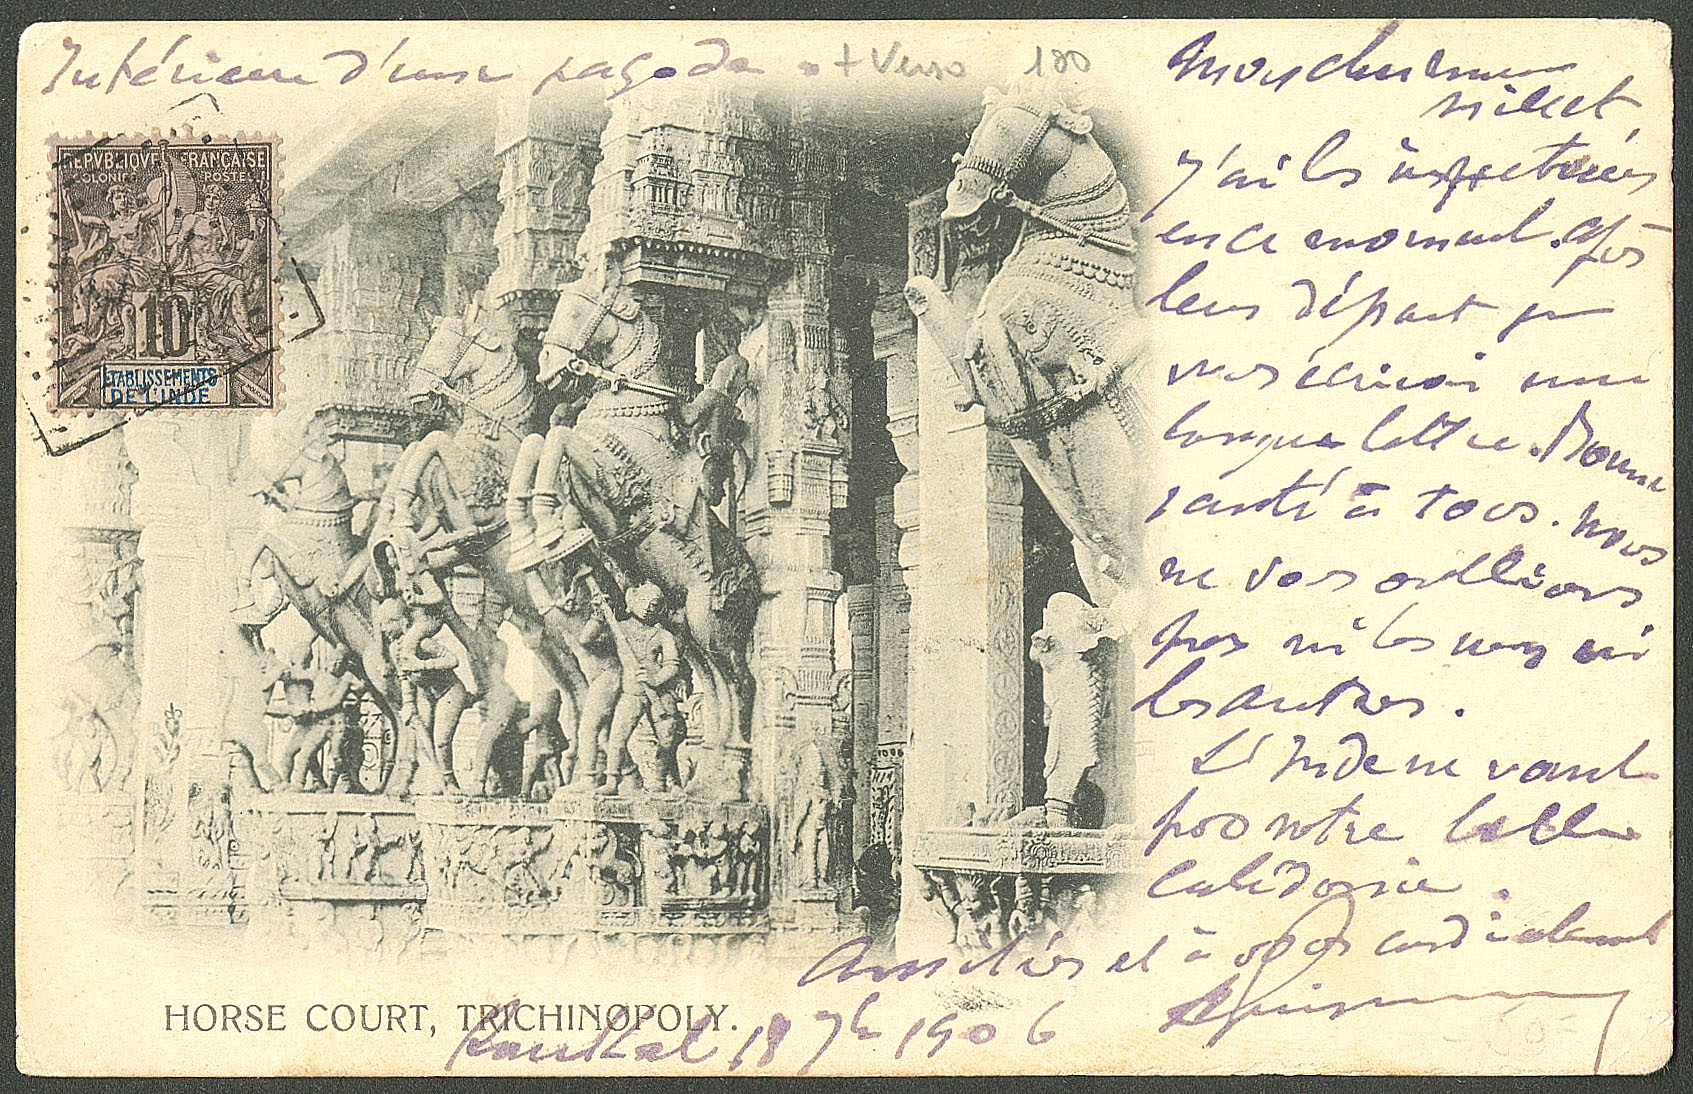 Intérieur d'une pagode + Verso 100
REPVBLIQVE FRANÇAISE
COLONIES POSTES
10
ETABLISSEMENTS
DE L'INDE
Mon cher
J'ai les inspecteurs
en ce moment. Après
leur départ je
vous écrirai une
longue lettre. Bonne
santé à tous. Nous
ne vous oublions
pas ni les uns ni
les autres.
L'Inde ne vaut
pas notre belle
Calédonie.
Amitiés et à vous cordialement
HORSE COURT, TRICHINOPOLY.
Karikal 18 7bre 1906